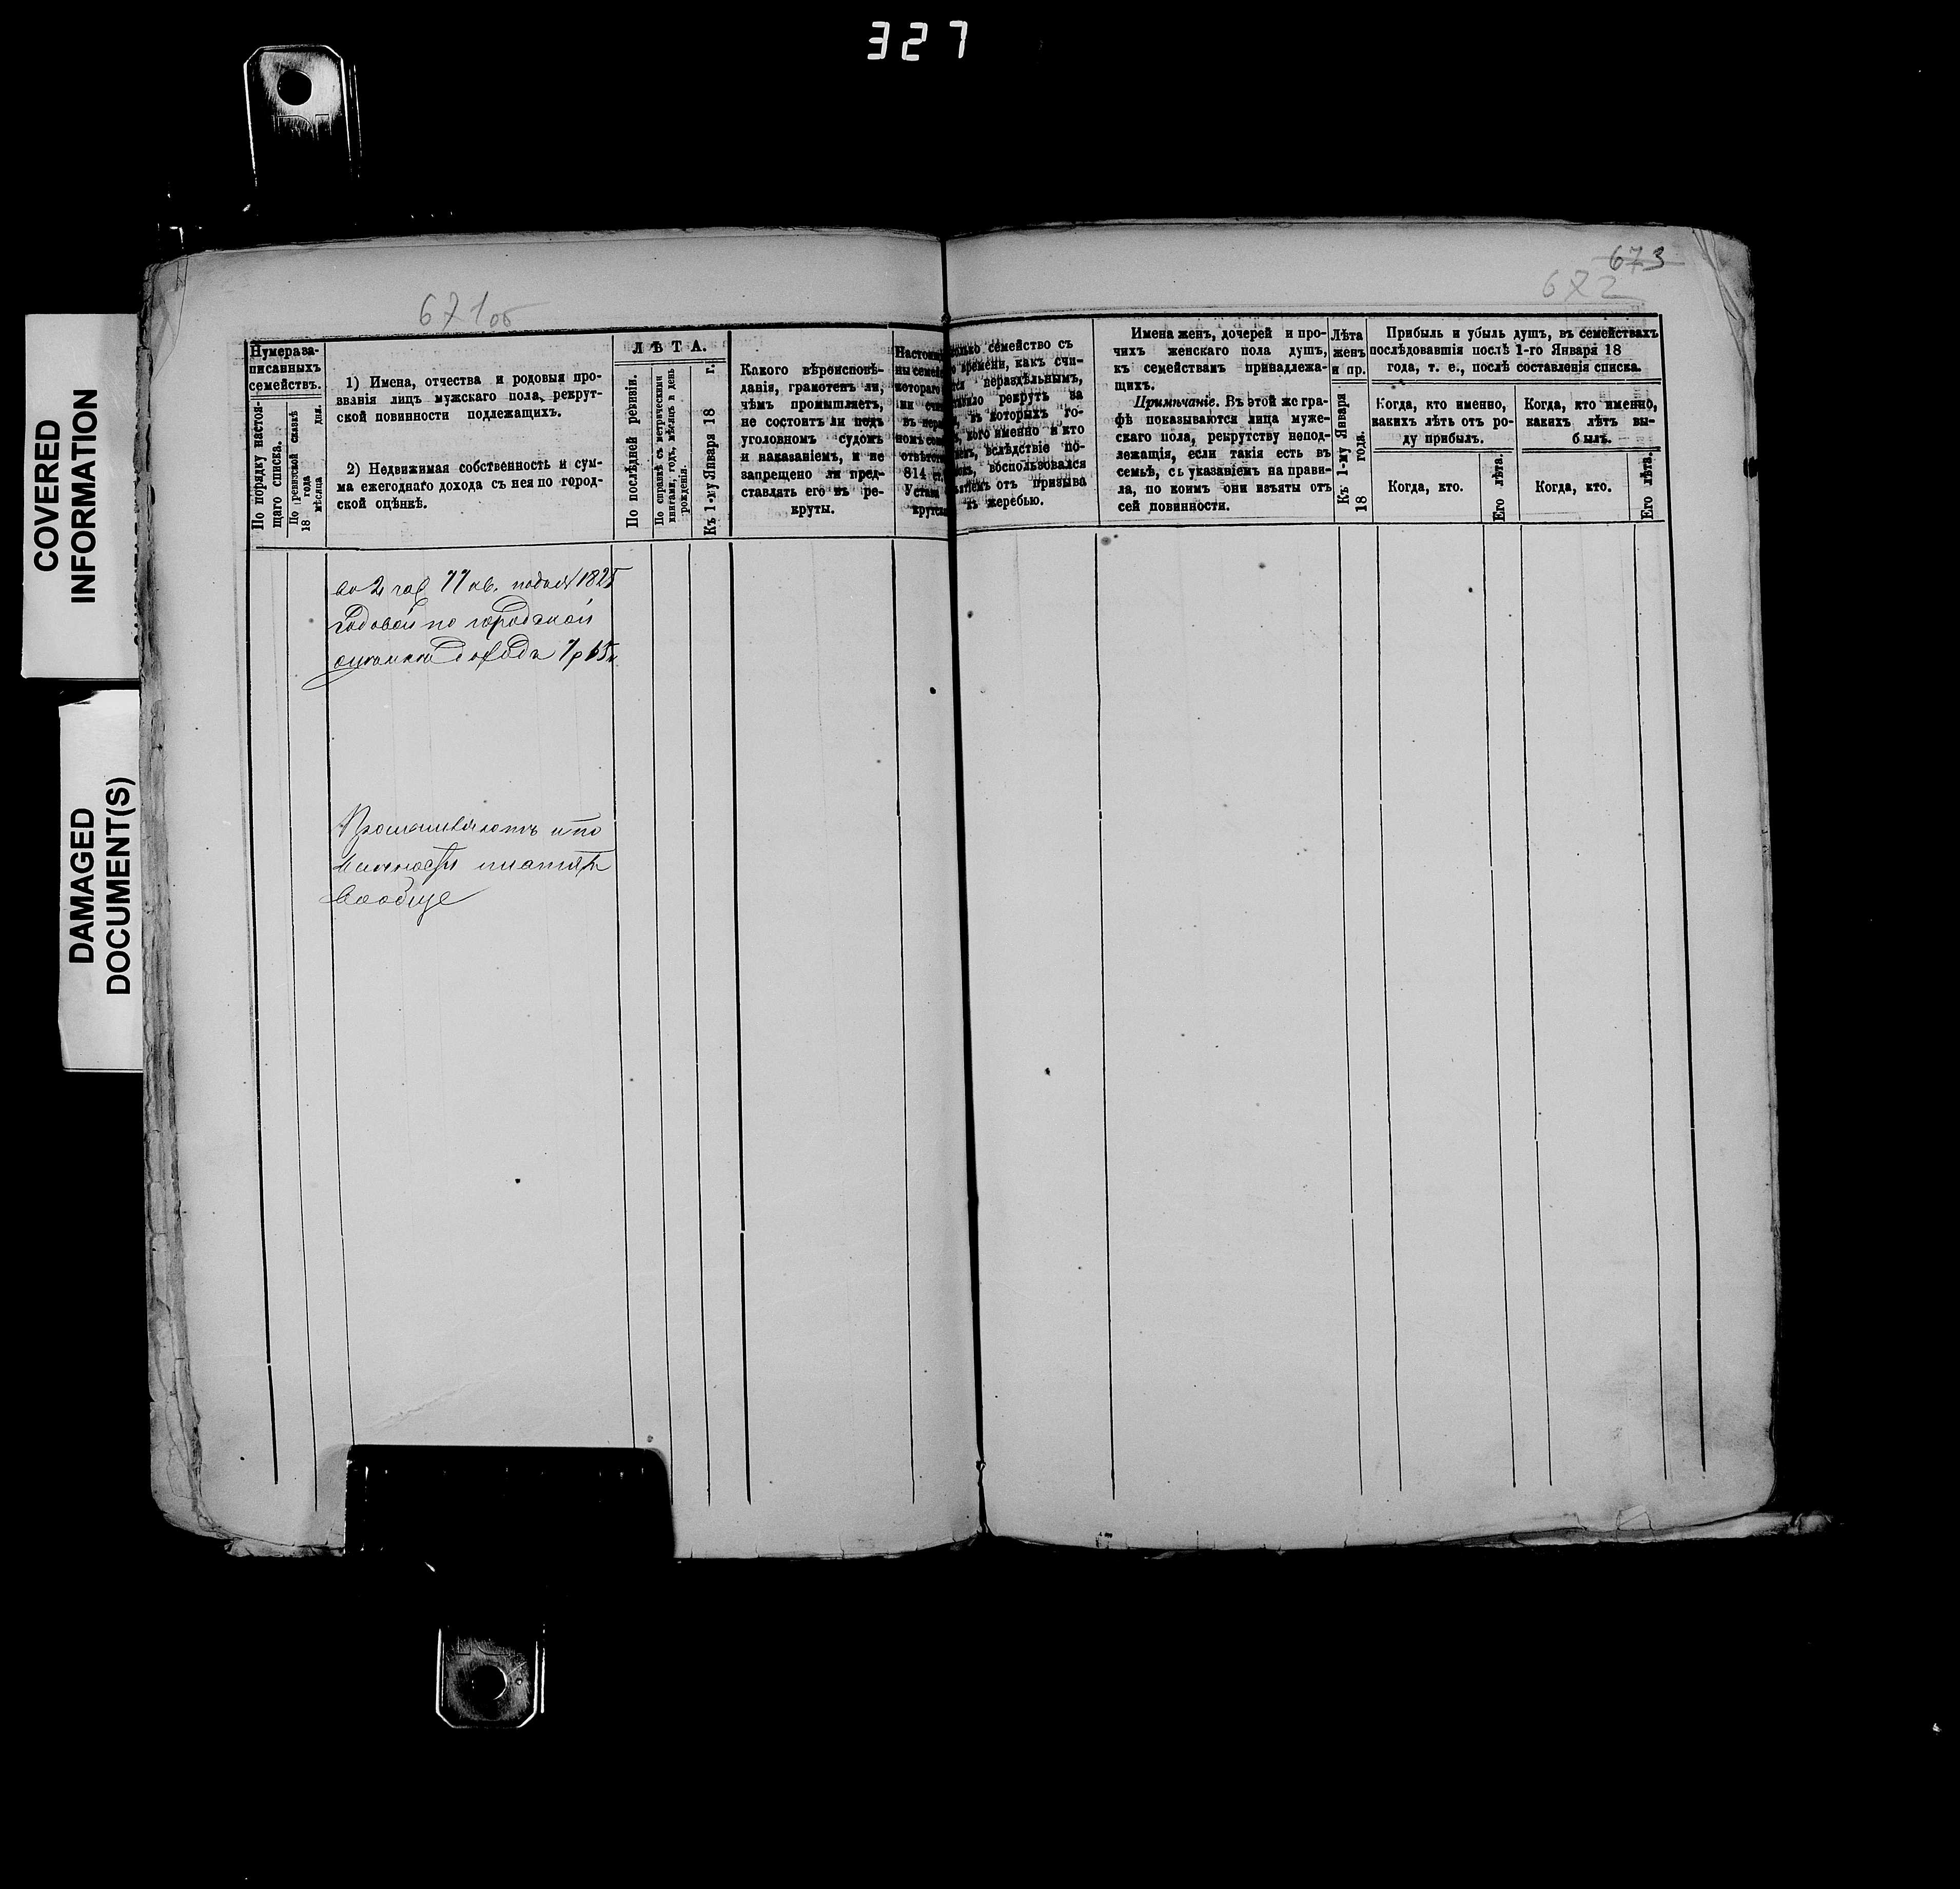 327
COVERED
INFORMATION
DAMAGED
DOCUMENT(S)
671об
673
672
Нумера за-
писанныхъ
семействъ.
По порядку настоя-
щаго списка.
По ревизской сказкѣ
18 года
мѣсяца дня.
1) Имена, отчества и родовыя про-
званія лицъ мужскаго пола, рекрут-
ской повинности подлежащихъ.
2) Недвижимая собственность и сум-
ма ежегоднаго дохода съ нея по город-
ской оцѣнкѣ.
ЛѢТА.
По послѣдней ревизіи.
По справкѣ съ метрическими
книгами, годъ, мѣсяцъ и день
рожденія.
Къ 1-му Января 18 г.
Какого вѣроисповѣ-
данія, грамотенъ ли,
чѣмъ промышляетъ,
не состоитъ ли подъ
уголовномъ судомъ
и наказаніемъ, и не
запрещено ли пред-
ставлять его въ ре-
круты.
котораго
814 ст.
семейство съ
времени, какъ счи-
нераздѣльнымъ,
рекрутъ за
въ которыхъ го-
кого именно и кто
вслѣдствіе по-
воспользовался
отъ призыва
жеребью.
Имена женъ, дочерей и про-
чихъ женскаго пола душъ,
къ семействамъ принадлежа-
щихъ.
Примѣчаніе. Въ этой же гра-
фѣ показываются лица муже-
скаго пола, рекрутству непод-
лежащія, если такія есть въ
семьѣ, съ указаніемъ на прави-
ла, по коимъ они изъяты отъ
сей повинности.
Лѣта
женъ
и пр.
Къ 1-му Января
18 года.
Прибыль и убыль душъ, въ семействахъ
послѣдовавшія послѣ 1-го Января 18
года, т. е., послѣ составленія списка.
Когда, кто именно,
какихъ лѣтъ отъ ро-
ду прибылъ.
Когда, кто именно,
какихъ лѣтъ вы-
былъ.
Когда, кто.
Его лѣта.
Когда, кто.
Его лѣта.
во 2 час 77 кв.
годовой по городской
доходъ 7р 15к
и по
вообще